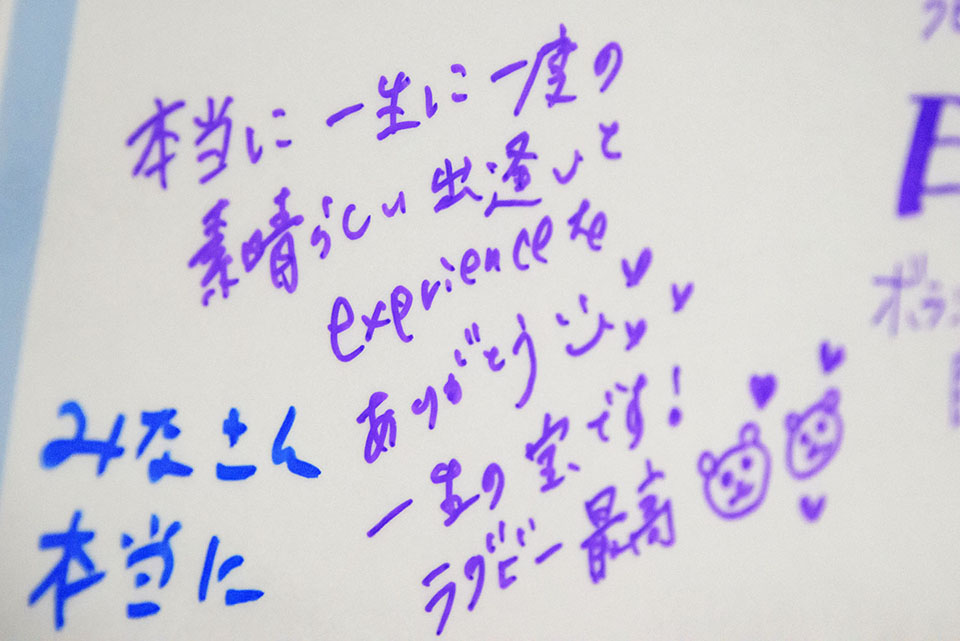 本当に一生に一度の
素晴らしい出逢いと
experienceを
ありがとう
一生の宝です!
ラグビー最高
みなさん
本当に
ボラ